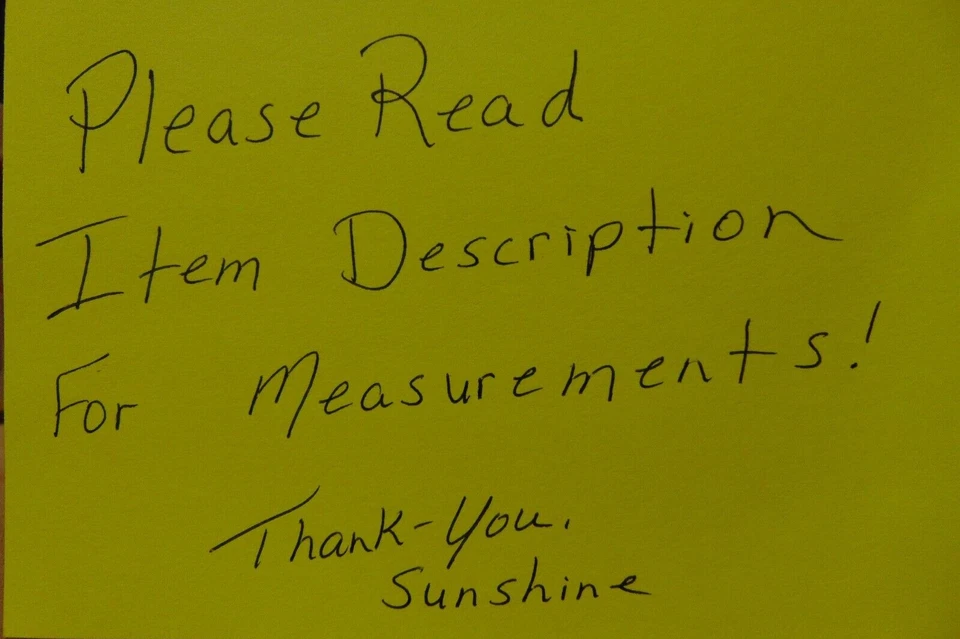 Please Read
Item Description
For Measurements!
Thank-You.
Sunshine